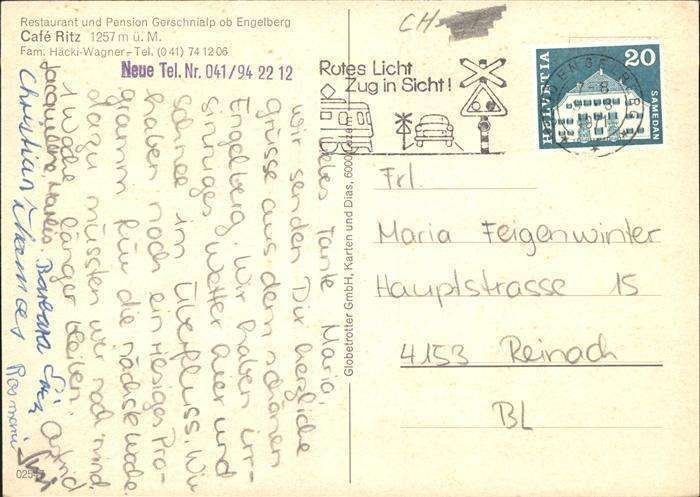 Restaurant und Pension Gerschnialp ob Engelberg
Café Ritz 1257 m ü. M.
Fam. Häcki-Wagner - Tel. (041) 74 12 06
Neue Tel. Nr. 041/94 22 12
CH-
Rotes Licht
Zug in Sicht!
HELVETIA
20
SAMEDAN
Liebes Tante Maria,
wir senden Dir herzliche
Grüsse aus dem schönen
Engelberg. Wir haben irr-
sinniges Wetter hier und
Schnee im Überfluss. Wir
haben noch ein riesiges Pro-
gramm für die nächste Woche
dazu müssten wir noch mind.
1 Woche länger bleiben.
Jacqueline, Marlies Barbara Astrid
Christian Thomas
Rosmarie
Frl.
Maria Feigenwinter
Hauptstrasse 15
4153 Reinach
BL
Globetrotter GmbH, Karten und Dias, 6000